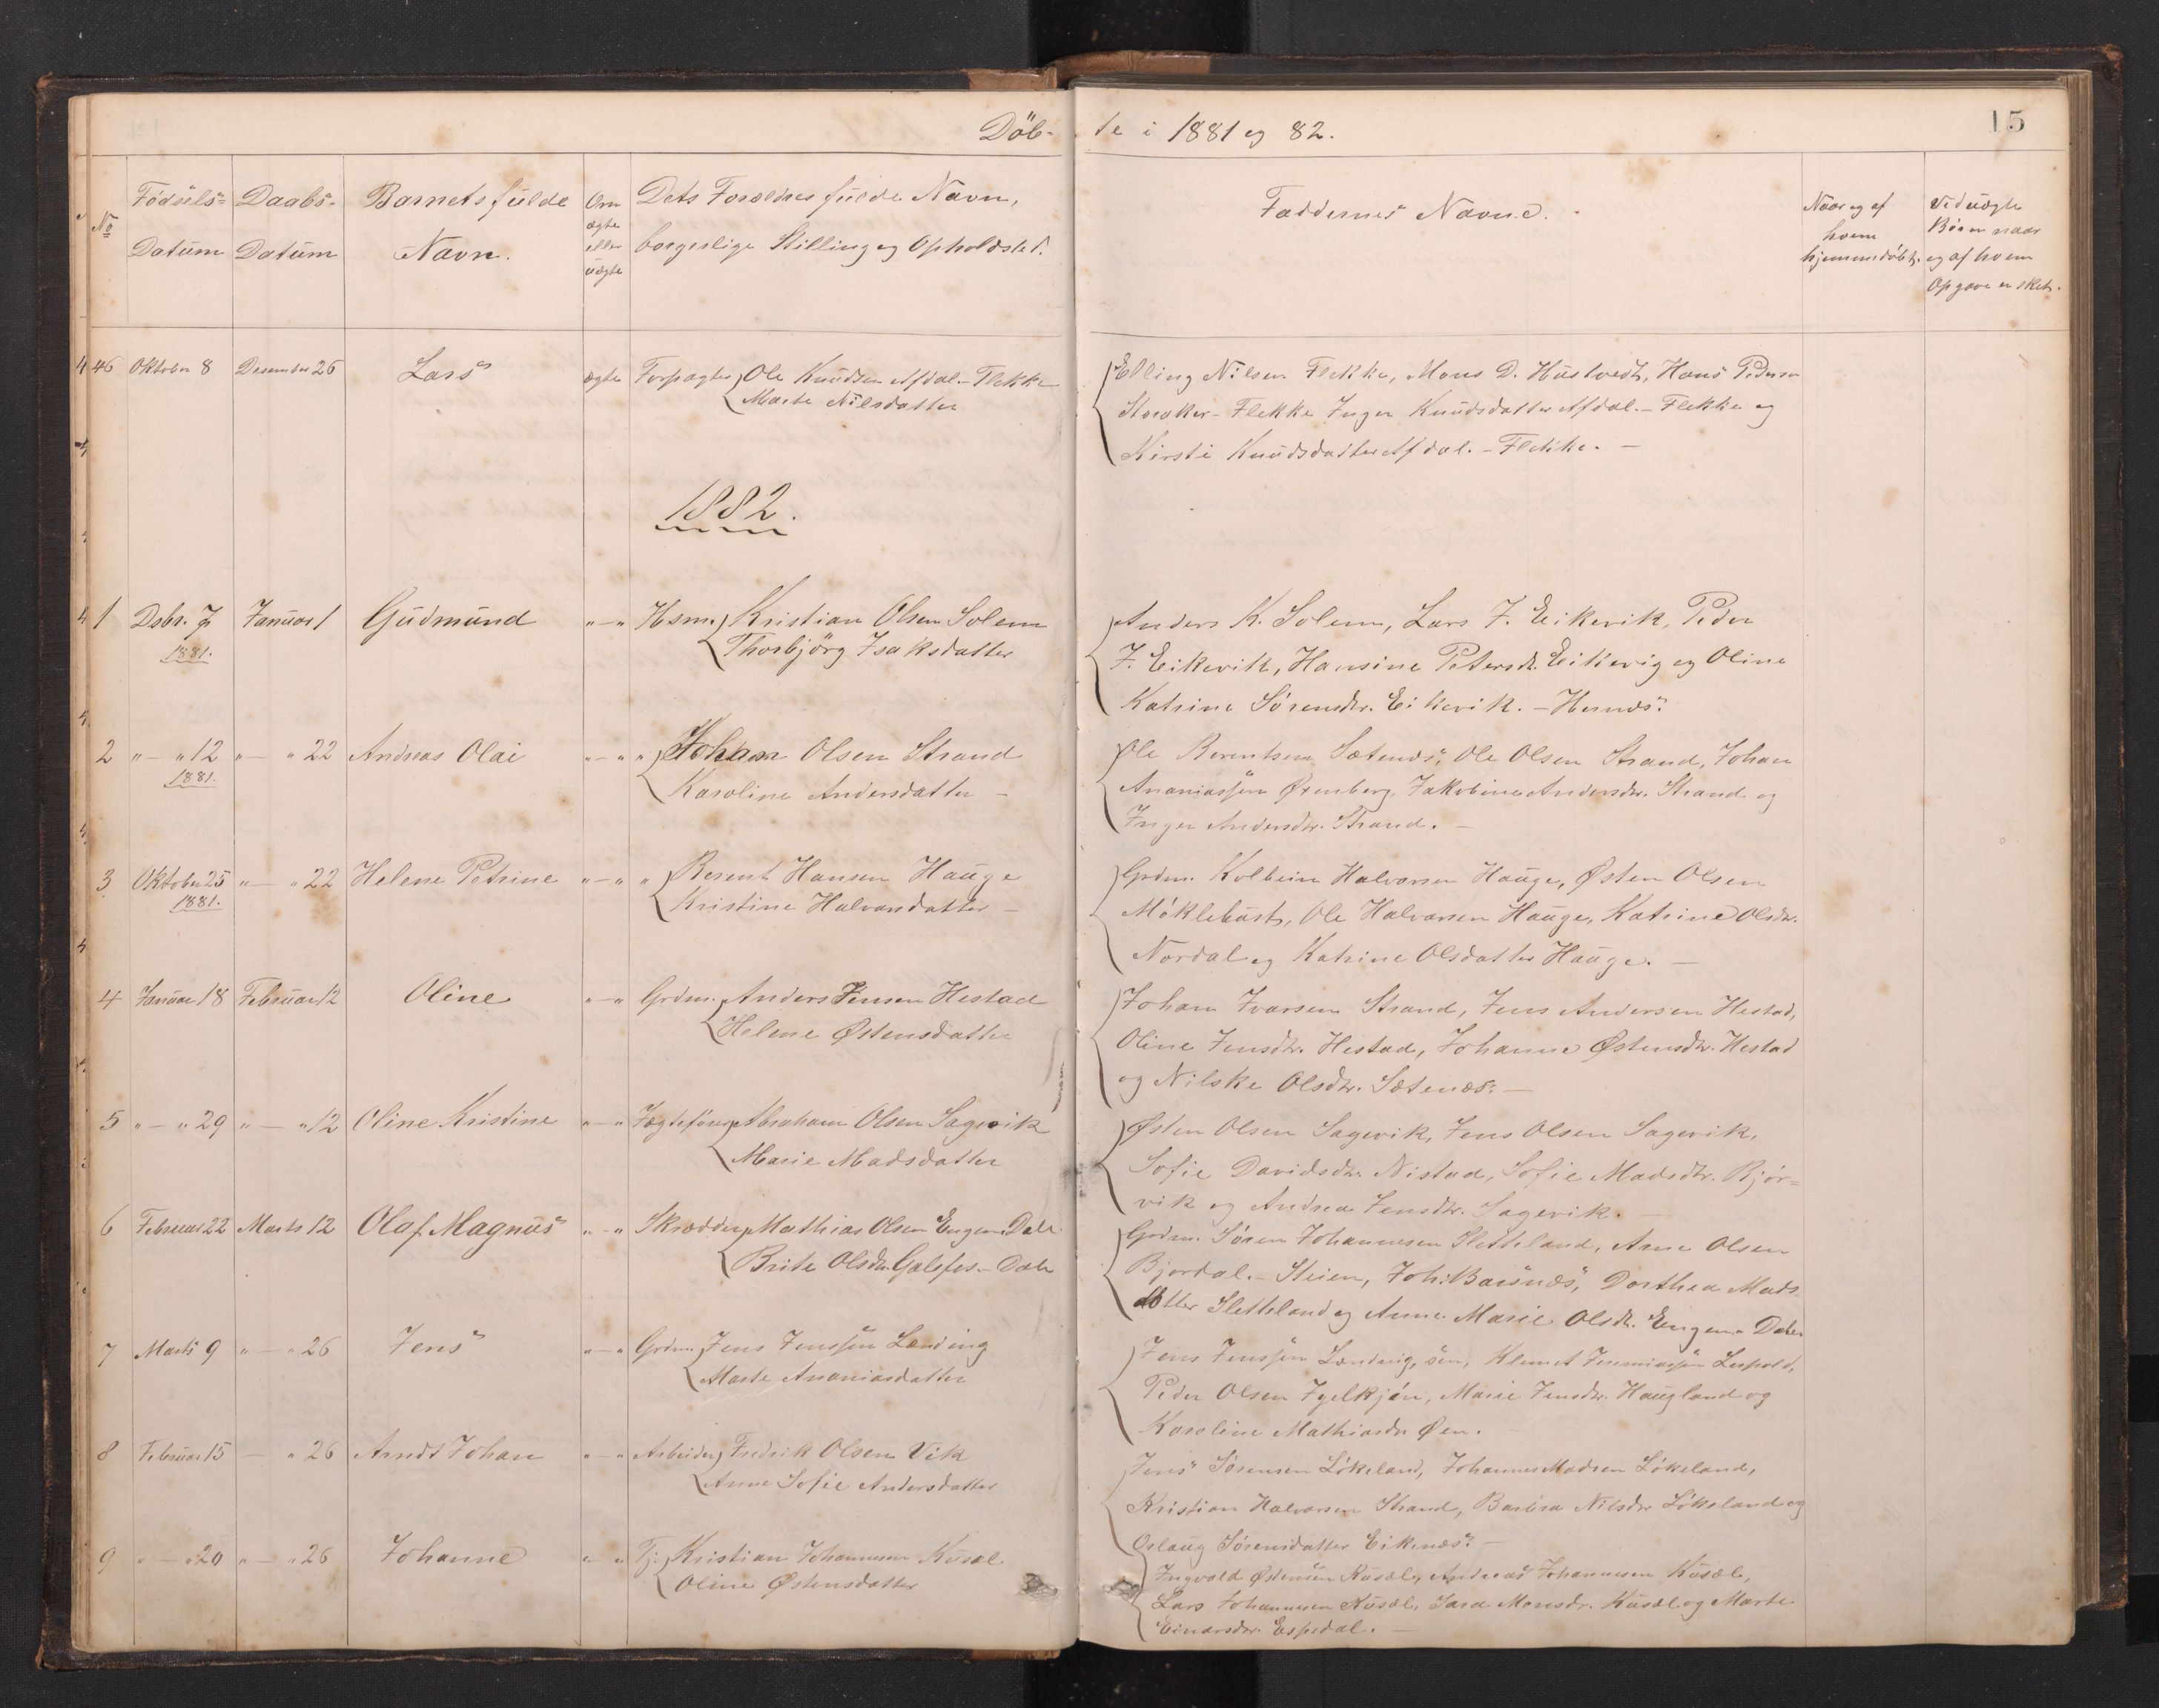 Döb- te i 1881 og 82.
15
No
Födsels- Datum
Daabs- Datum
Barnets fulde Navn.
Om ægte eller uægte
Dets Forældres fulde Navn, borgerlige Stilling og Opholdsted.
Faddernes Navne.
Naar og af hvem hjemmedöbt.
Ved uægte Börn naar og af hvem Opgave er skeet.
46 Oktober 8 Desember 26 Lars ægte Forpagter Ole Knudsen Afdal - Flekke
Marte Nilsdatter
Elling Nilsen Flekke, Mons D. Hustvedt, Hans Pedersen
Storaker - Flekke Inger Knudsdatter Afdal. - Flekke og
Kirsti Knudsdatter Afdal. - Flekke. -
1882.
1 Dsbr. 7 Januar 1 Gudmund " - " Hsm. Kristian Olsen Solem
1881. Thorbjörg Isaksdatter
Anders K. Solem, Lars J. Eikevik, Peder
J. Eikevik, Hansine Petersdt. Eikevig og Oline
Katrine Sörensdtr. Eikevik. - Hernæs.
2 " - " 12 " - " 22 Andreas Olai " - " " Johan Olsen Strand
1881. Karoline Andersdatter -
Ole Berentsen Sætenæs, Ole Olsen Strand, Johan
Ananiassön Örenberg, Jakobine Andersdtr. Strand og
Inger Andersdtr. Strand. -
3 Oktober 25 " - " 22 Helene Petrine " - " " Berent Hansen Hauge
1881. Kristine Halvorsdatter -
Grdm. Kolbein Halvorsen Hauge, Østen Olsen
Möklebust, Ole Halvorsen Hauge, Katrine Olsdtr.
Nordal og Katrine Olsdatter Hauge. -
4 Januar 18 Februar 12 Oline " - " Grdm. Anders Jensen Hestad
Helene Østensdatter
Johan Ivarsen Strand, Jens Andersen Hestad,
Oline Jensdtr. Hestad, Johanne Østensdtr. Hestad
og Nilske Olsdtr. Sætenæs. -
5 " - " 29 " - " 12 Oline Kristine " - " Jægteförer Abraham Olsen Sagevik
Marie Madsdatter
Østen Olsen Sagevik, Jens Olsen Sagevik,
Sofie Davidsdtr. Nistad, Sofie Madsdtr. Bjør-
vik og Andrea Jensdtr. Sagevik. -
6 Februar 22 Marts 12 Olaf Magnus " - " Skrædder Mathias Olsen Engen - Dale
Brite Olsdtr. - Dale
Grdm. Sören Johannesen Sletteland, Arne Olsen
Bjordal. - Steien, Joh: Baisnæs, Dorthea Mads
datter Sletteland og Anne Marie Olsdt. Engen - Dale
7 Marts 9 " - " 26 Jens " - " Grdm. Jens Jenssön Lending
Marte Ananiasdatter
Jens Jenssön, sen, Klemet Jeremiassön,
Peder Olsen, Marie Jensdtr. Haugland og
Karoline Mathiasdtr Øen. -
8 Februar 15 - " 26 Arndt Johan " - " Arbeider Fredrik Olsen Vik
Anne Sofie Andersdatter
Jens Sörensen Lökeland, Johannes Madsen Lökeland,
Kristian Halvorsen Strand, Barbra Nilsdtr Lökeland og
Oslaug Sörensdatter Eikenæs. -
9 " - " 20 " - " 26 Johanne " " Tj: Kristian Johannesen Kusæl
Oline Østensdatter
Ingvald Østensen Kusæl, Andreas Johannesen Kusæl,
Lars Johannesen Kusæl, Sara Monsdr. Kusæl og Marte
Einarsdtr. Espedal. -